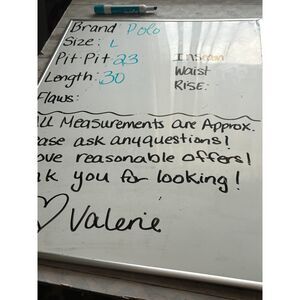 Brand Polo
Size: L
Pit-Pit 23
Inseam
Length: 30
Waist
RISE:
Flaws:
ALL Measurements are Approx.
ease ask any questions!
ove reasonable offers!
nk you for looking!
♡ Valerie